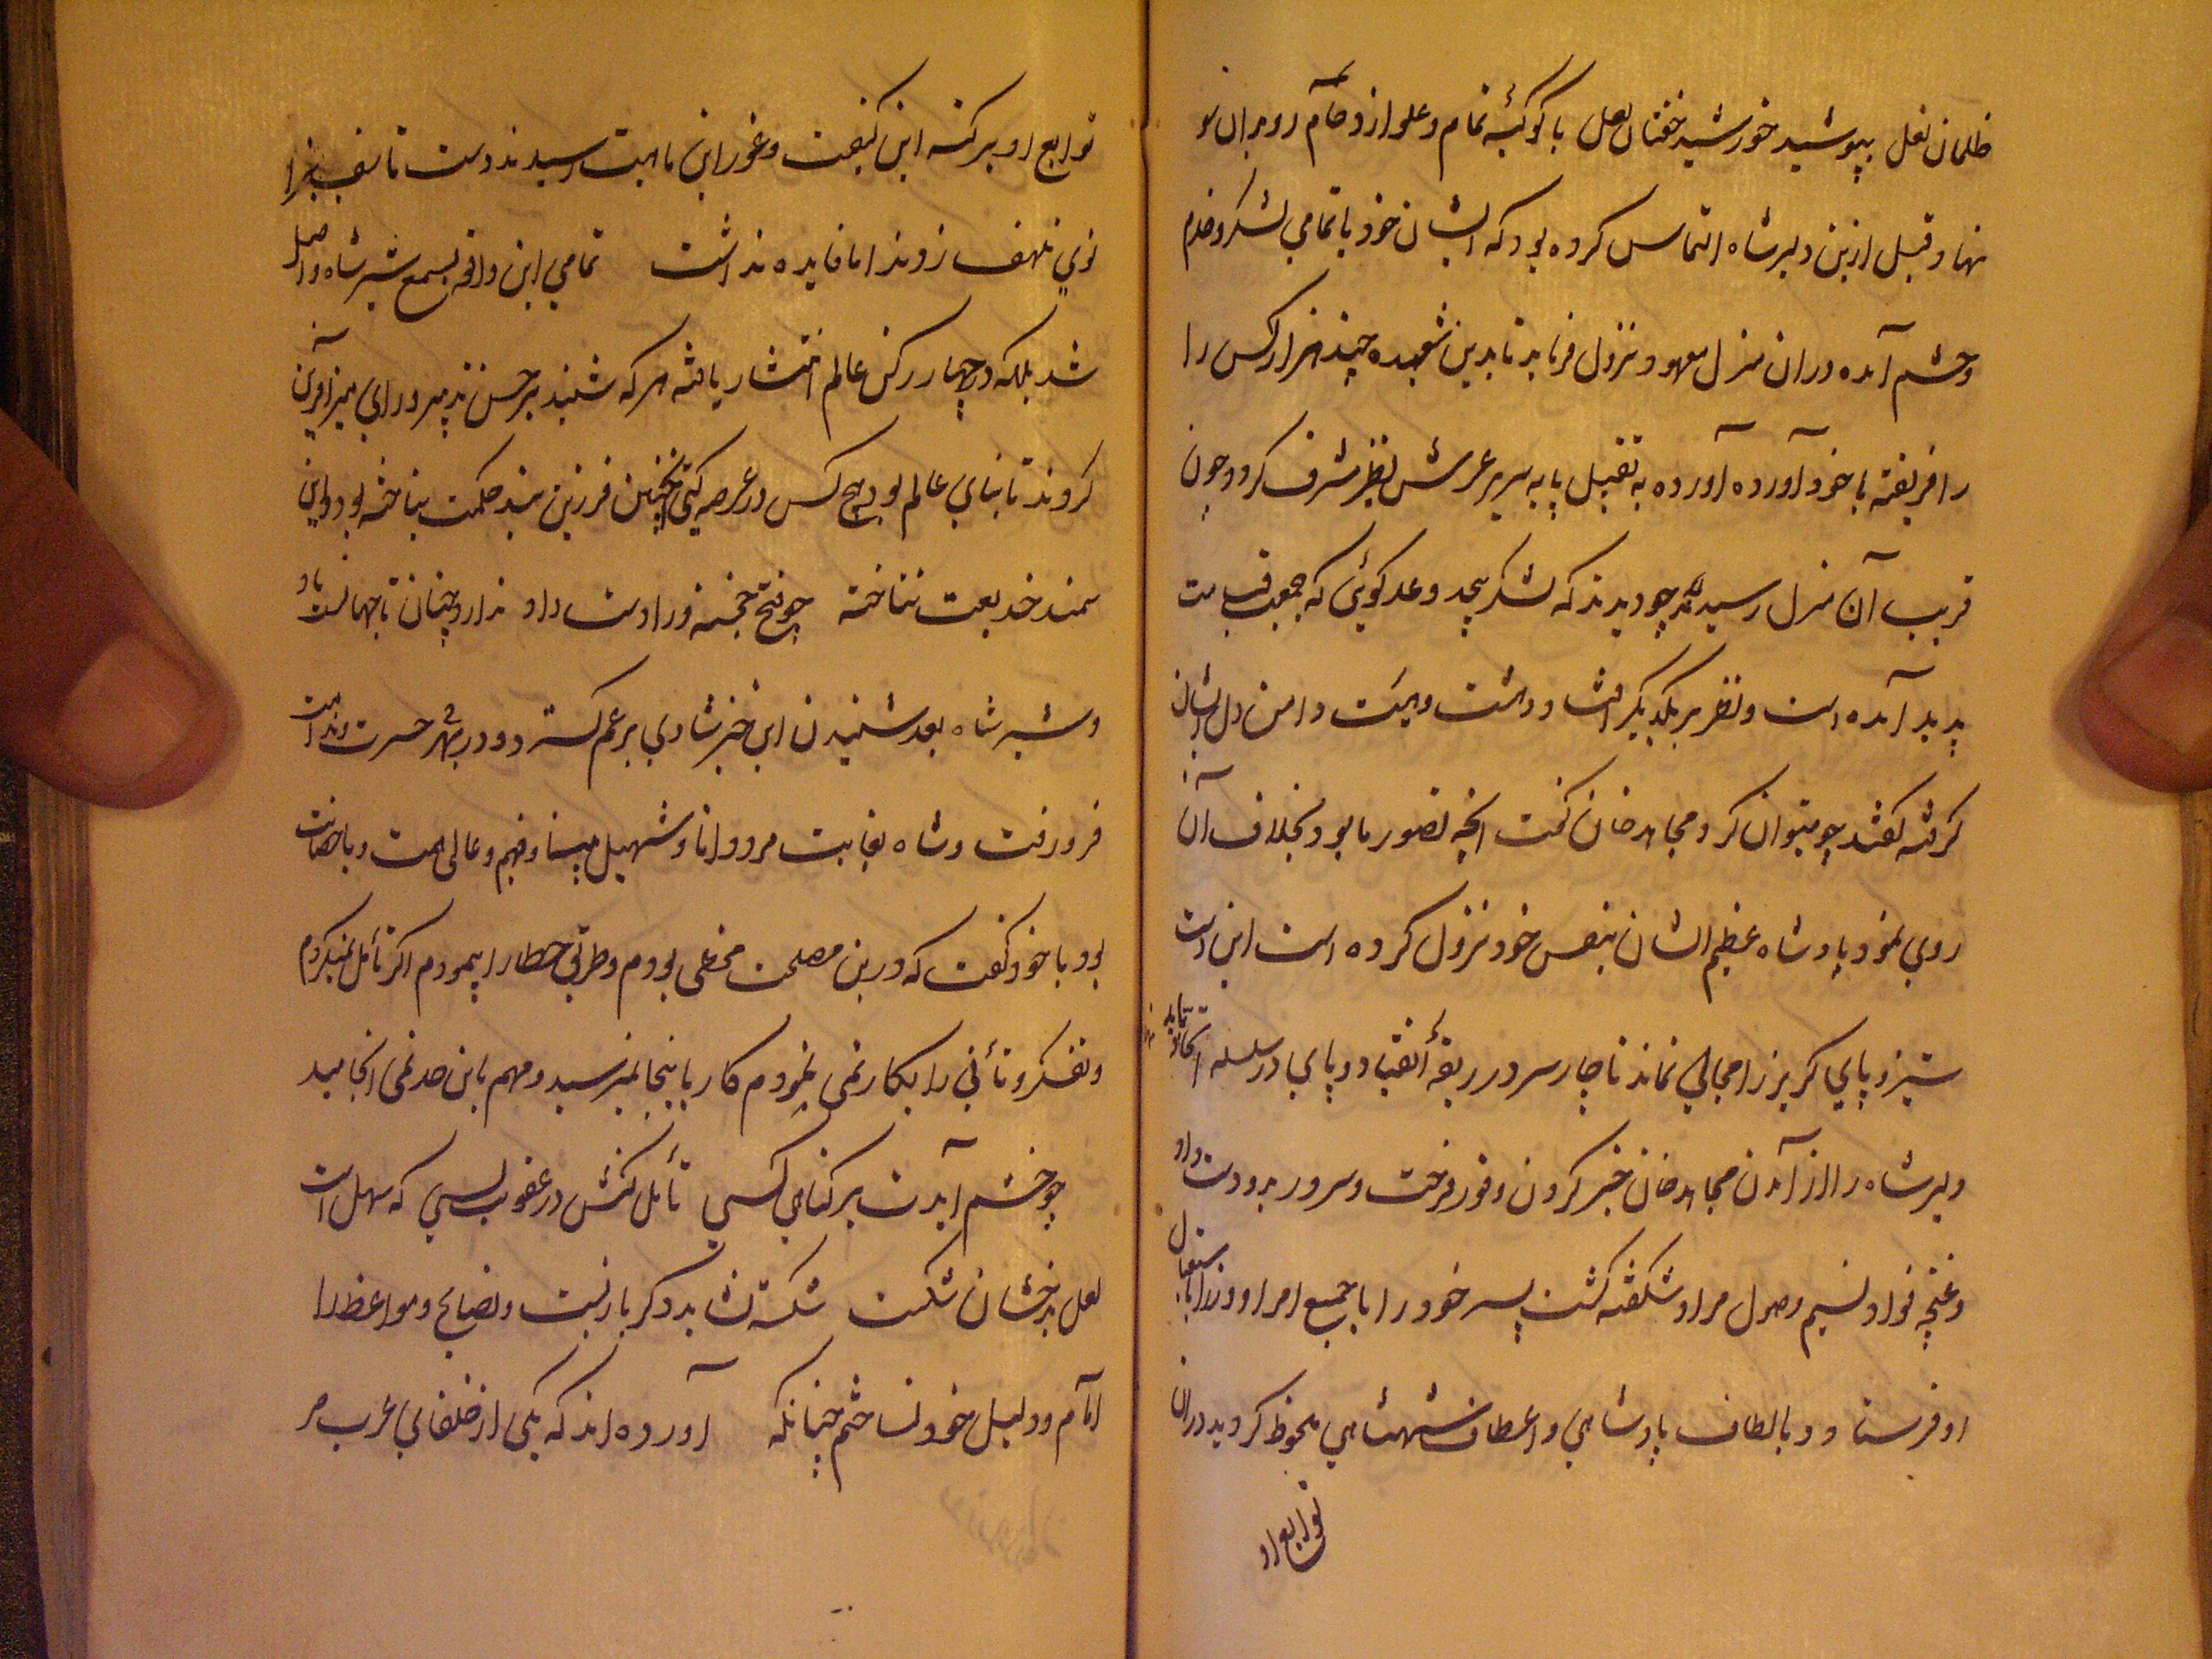 ظلمان لعل بپوشید خورشید خفتان لعل با کوکبهٔ تمام و علو ازدحام رو بران سو
نهاد و قبل ازین دلیرشاه التماس کرده بود که ایشان خود با تمامی لشکر و خدم
و حشم آمده دران منزل معهود نزول فرماید تا بدین شعبده چند هزار کس را
را فریفته با خود آورده آورده به تقبیل پایه سریر عرش نظیر مشرف کرد و چون
قریب آن منزل رسیدند چو دیدند که لشکر بیحد و عد کوئی که جمعیت قیامت
پدید آمده است و نظر بر یکدیگر افتاد و دهشت و هیبت دامن دل ایشان
کرفته کفتند چو میتوان کرد مجاهد خان کفت انچه تصور ما بود بخلاف آن
روی نمود پادشاه عظیم الشان بنفس خود نزول کرده است این دست
ستیز و پای کریز را مجالی نماند ناچار سر در ربقهٔ انقیاد و پای در سلسله
دلیرشاه را از آمدن مجاهد خان خبر کردن وفور فرحت و سرور بدو دست داد
و غنچه فواد و نسیم وصول مراد شکفته کشت پسر خود را با جمیع امرا و وزرا باستقبال
او فرستاد و بالطاف پادشاهی و اعطاف شهنشاهی محظوظ کردید دران
توابع او
توابع او بر کنه این کیفیت و غور این ماهیت رسیدند دست تاسف بزا
نوی تلهف زدند اما فایده نداشت تمامی این واقعه بسمع شیرشاه واصل
شد بلکه در چهار رکن عالم انتشار یافته هر که شنید بر حسن تدبیر و رای میر آفرین
کردند تا بنای عالم بود هیچ کس در عرصه کیتی اینچنین فرزین بند حکمت نباخته بود و این
سمند خدیعت نتاخته چو فتح خجسته ورا دست داد ندارد چنان تا جهانست یاد
و شیرشاه بعد شنیدن این خبر شادی بر غم کسترد و در بحر حسرت و ندامت
فرو رفت و شاه بغایت مرد دانا و شهیل مینا و فهم و عالی همت و با حصانت
بود با خود کفت که درین مصلحت مخطی بودم و طریق خطا را پیمودم اکر تأمل میکردم
و تفکر و تأنی را بکار نمی نمودم کار باینجا نمیرسید و مهم باین حد نمی انجامید
چو خشم آیدت بر کناه کسی تأمل کنش در عقوبت بسی که سهل است
لعل بدخشان شکست شکسته نشاید دکر باره بست و نصایح و مواعظ را
امام و دلیل خود نساختم چنانکه آورده اند که یکی از خلفای عرب مر